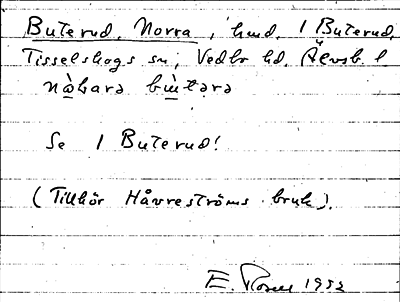 Buterud, Norra, hmd. 1 Buterud,
Tisselskogs sn, Vedbo hd. Älvsb. l
nò̱hara bù̱tərə
Se 1 Buterud!
(Tillhör Håvreströms bruk).
E. Rosell 1952